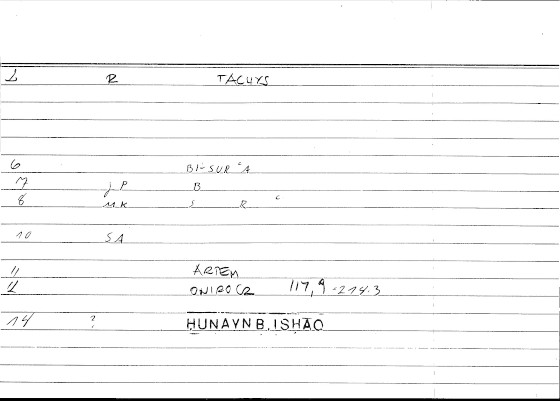 L R TACUYS
6 BI-SUR "A
7 J P B
8 MK S R "
10 SA
11 ARTEM
12 ONIROCR 117,9-214.3
14 ? HUNAYN B. ISHAQ